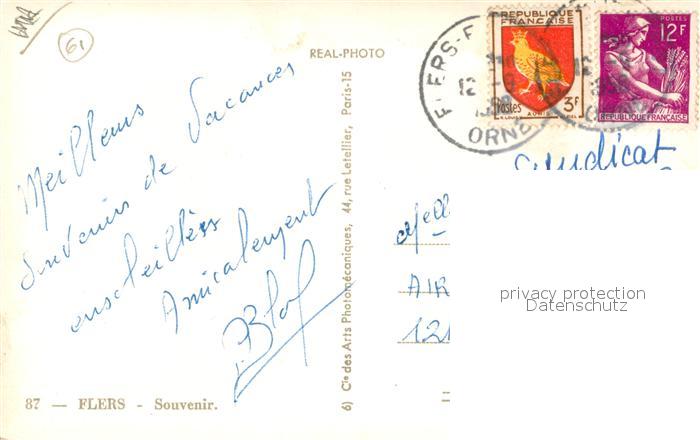 61
REAL-PHOTO
REPUBLIQUE FRANÇAISE
Postes 3F
POSTES
12F
REPUBLIQUE FRANÇAISE
FLERS
12
ORNE
Meilleurs
Souvenirs de Vacances
ensoleillées
Amicalement
Syndicat
Melle
AIR
121
privacy protection
Datenschutz
6) Cie des Arts Photomécaniques, 44, rue Letellier, Paris-15
87 — FLERS - Souvenir.